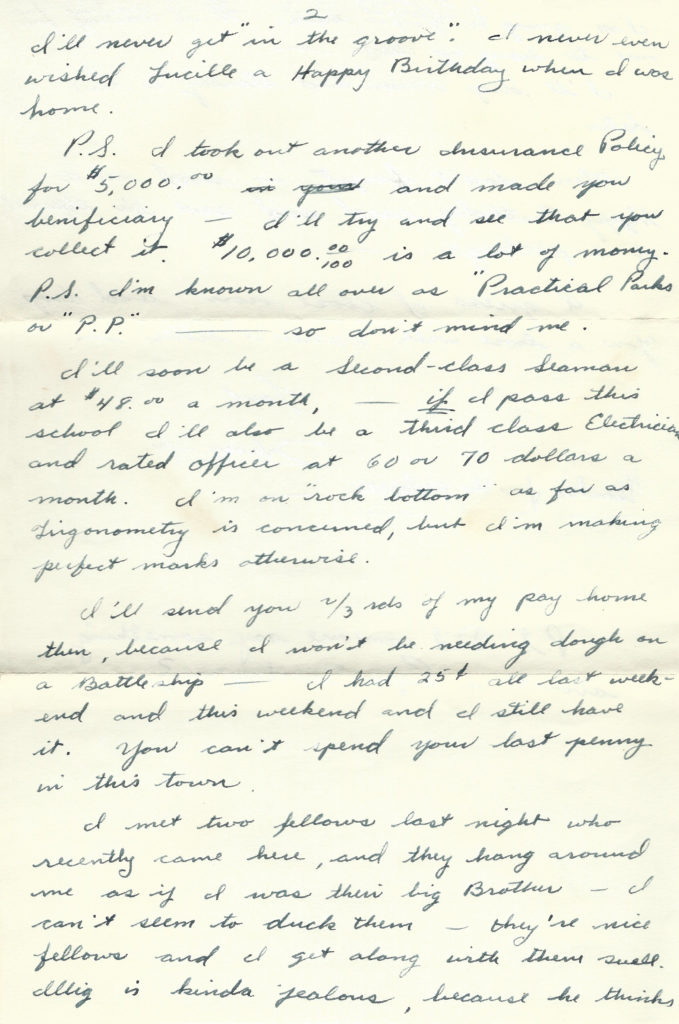 2
I'll never get "in the groove". I never even
wished Lucille a Happy Birthday when I was
home.
P.S. I took out another Insurance Policy
for $5,000.00 in your and made you
benificiary — I'll try and see that you
collect it. $10,000.00/100 is a lot of money.
P.S. I'm known all over as "Practical Parks
or "P.P." —— so don't mind me.
I'll soon be a Second-class Seaman
at $48.00 a month, — if I pass this
school I'll also be a third class Electrician
and rated officer at 60 or 70 dollars a
month. I'm on "rock bottom" as far as
Trigonometry is concerned, but I'm making
perfect marks otherwise.
I'll send you 2/3 rds of my pay home
then, because I won't be needing dough on
a Battleship — I had 25¢ all last week-
end and this weekend and I still have
it. You can't spend your last penny
in this town.
I met two fellows last night who
recently came here, and they hang around
me as if I was their big Brother — I
can't seem to duck them — they're nice
fellows and I get along with them swell.
is kinda jealous, because he thinks